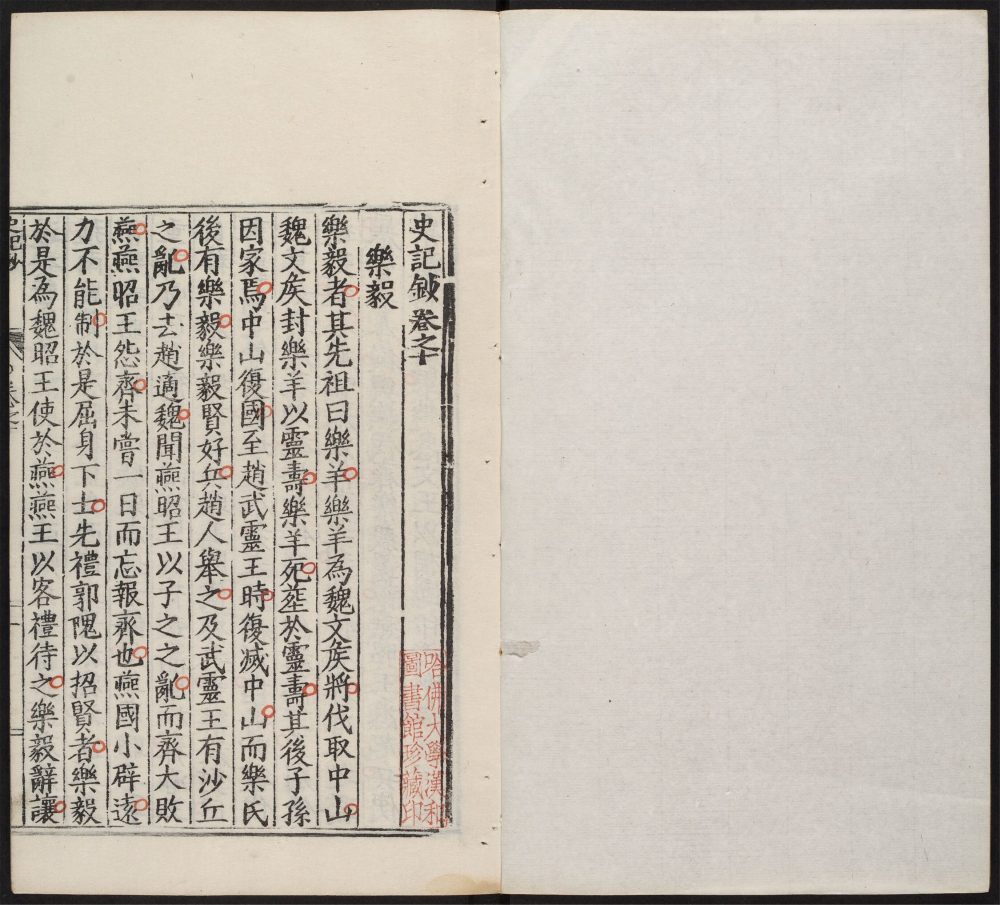 史記鈔卷之十
樂毅
樂毅者其先祖曰樂羊樂羊為魏文矦將伐取中山
魏文矦封樂羊以靈壽樂羊死塟於靈壽其後子孫
因家焉中山復國至趙武靈王時復滅中山而樂氏
後有樂毅樂毅賢好兵趙人舉之及武靈王有沙丘
之亂乃去趙適魏聞燕昭王以子之之亂而齊大敗
燕燕昭王怨齊未嘗一日而忘報齊也燕國小辟遠
力不能制於是屈身下士先禮郭隗以招賢者樂毅
於是為魏昭王使於燕燕王以客禮待之樂毅辭讓
哈佛大學漢和
圖書館珍藏印